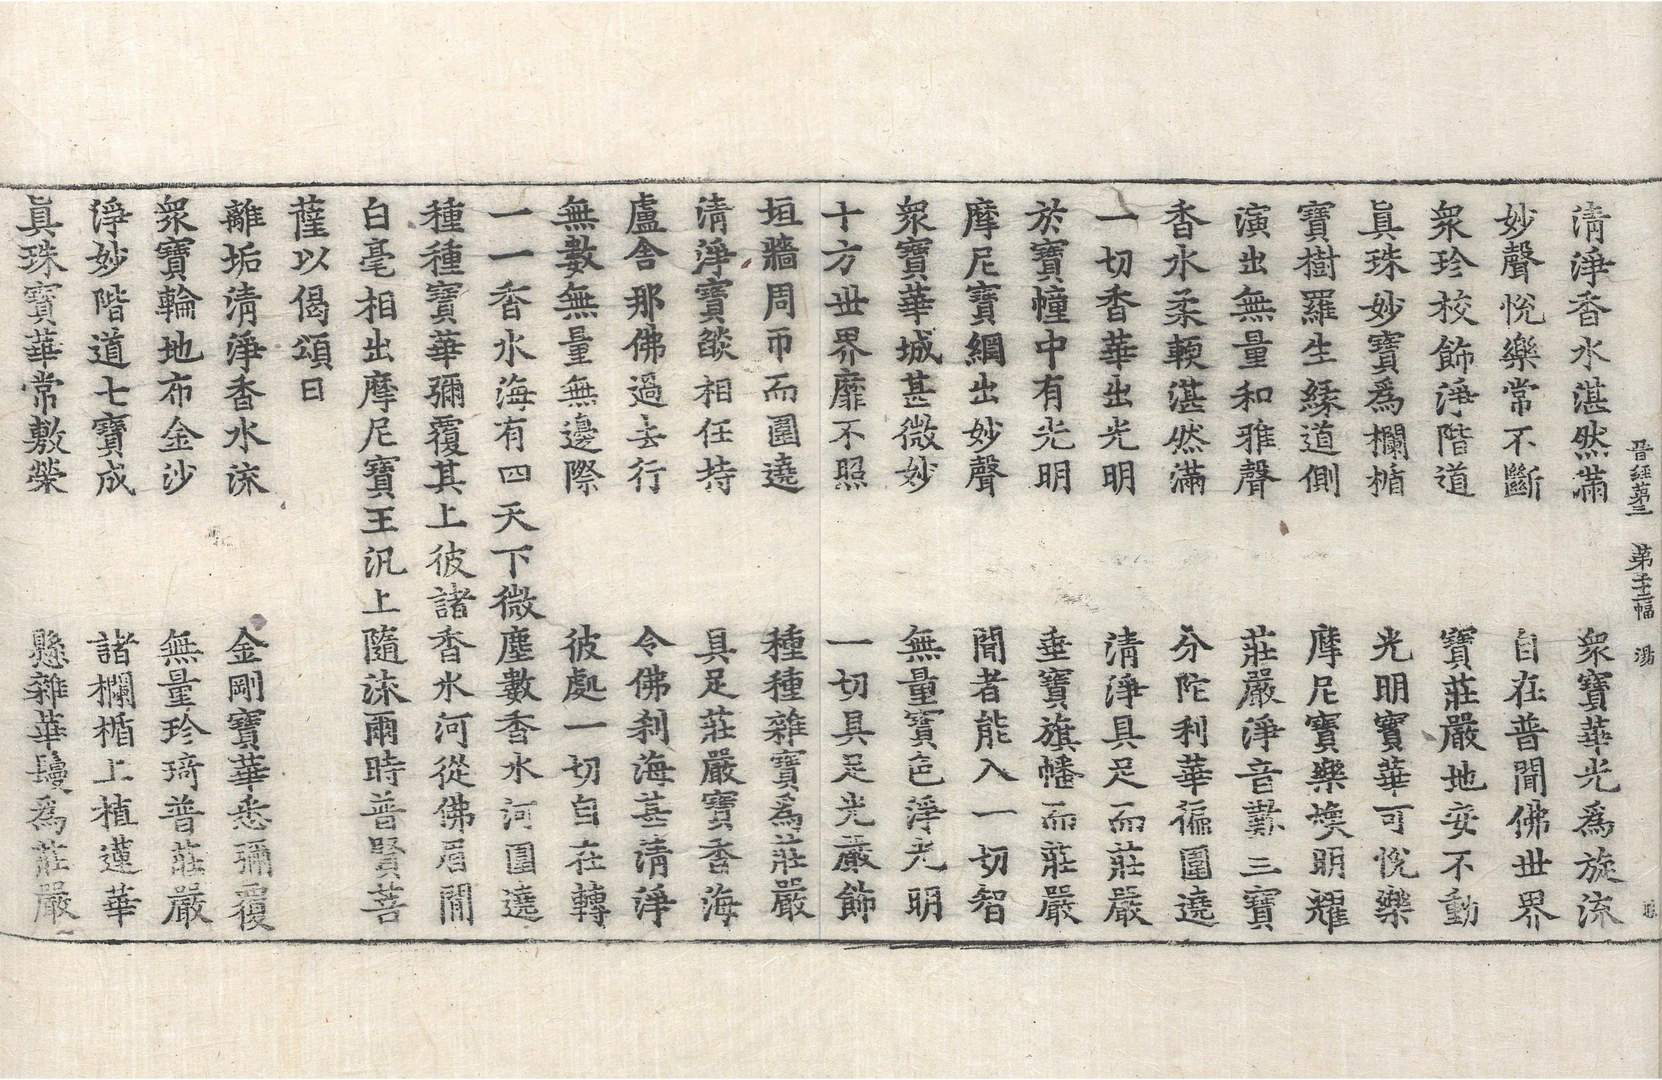 晉經第三 第十二幅 湯
清淨香水湛然滿 衆寶華光爲旋流
妙聲悅樂常不斷 自在普聞佛世界
衆珍校飾淨階道 寶莊嚴地安不動
眞珠妙寶爲欄楯 光明寶華可悅樂
寶樹羅生緣道側 摩尼寶樂煥明耀
演出無量和雅聲 莊嚴淨音歎三寶
香水柔軟湛然滿 分陀利華徧圍遶
一切香華出光明 清淨具足而莊嚴
於寶幢中有光明 垂寶旗幡而莊嚴
摩尼寶網出妙聲 聞者能入一切智
衆寶華城甚微妙 無量寶色淨光明
十方世界靡不照 一切具足光嚴飾
垣牆周帀而圍遶 種種雜寶爲莊嚴
清淨寶燄相任持 具足莊嚴寶香海
盧舍那佛過去行 令佛刹海甚清淨
無數無量無邊際 彼處一切自在轉
一一香水海有四天下微塵數香水河圍遶
種種寶華彌覆其上彼諸香水河從佛眉間
白毫相出摩尼寶王汎上隨流爾時普賢菩
薩以偈頌曰
離垢清淨香水流 金剛寶華悉彌覆
衆寶輪地布金沙 無量珍琦普莊嚴
淨妙階道七寶成 諸欄楯上植蓮華
眞珠寶華常敷榮 懸雜華鬘爲莊嚴